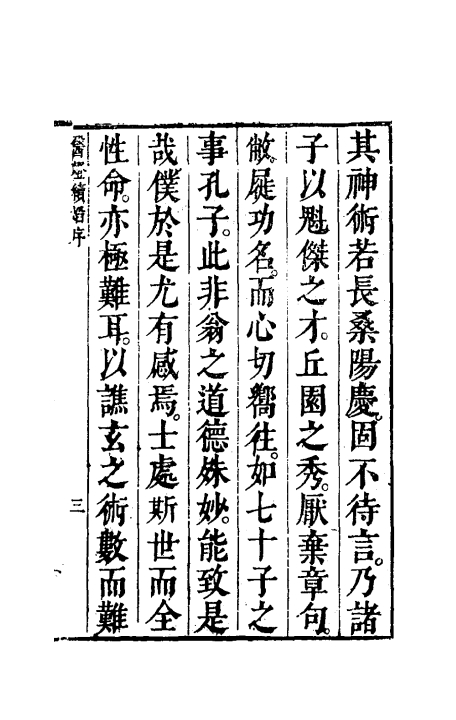 其神術若長桑陽慶。固不待言。乃諸
子以魁傑之才。丘園之秀。厭棄章句。
敝屣功名。而心切嚮往。如七十子之
事孔子。此非翁之道德姝妙。能致是
哉僕於是尤有感焉。士處斯世而全
性命。亦極難耳。以譙玄之術數而難
三